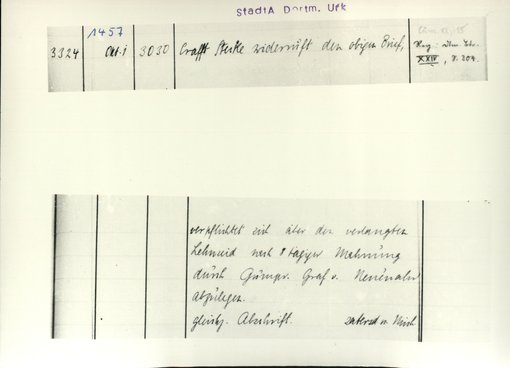 StadtA Dortm. Urk
1457
3324 Okt. 1 3030 Crafft Stecke widerruft den obigen Brief,
Reg: Dtm. Btr.
XXIV, S. 204.
verpflichtet sich aber den verlangten
Lehneid nach 8 tägger Mahnung
durch Gumpr. Graf v. Neuenahr
abzulegen.
gleichz. Abschrift.